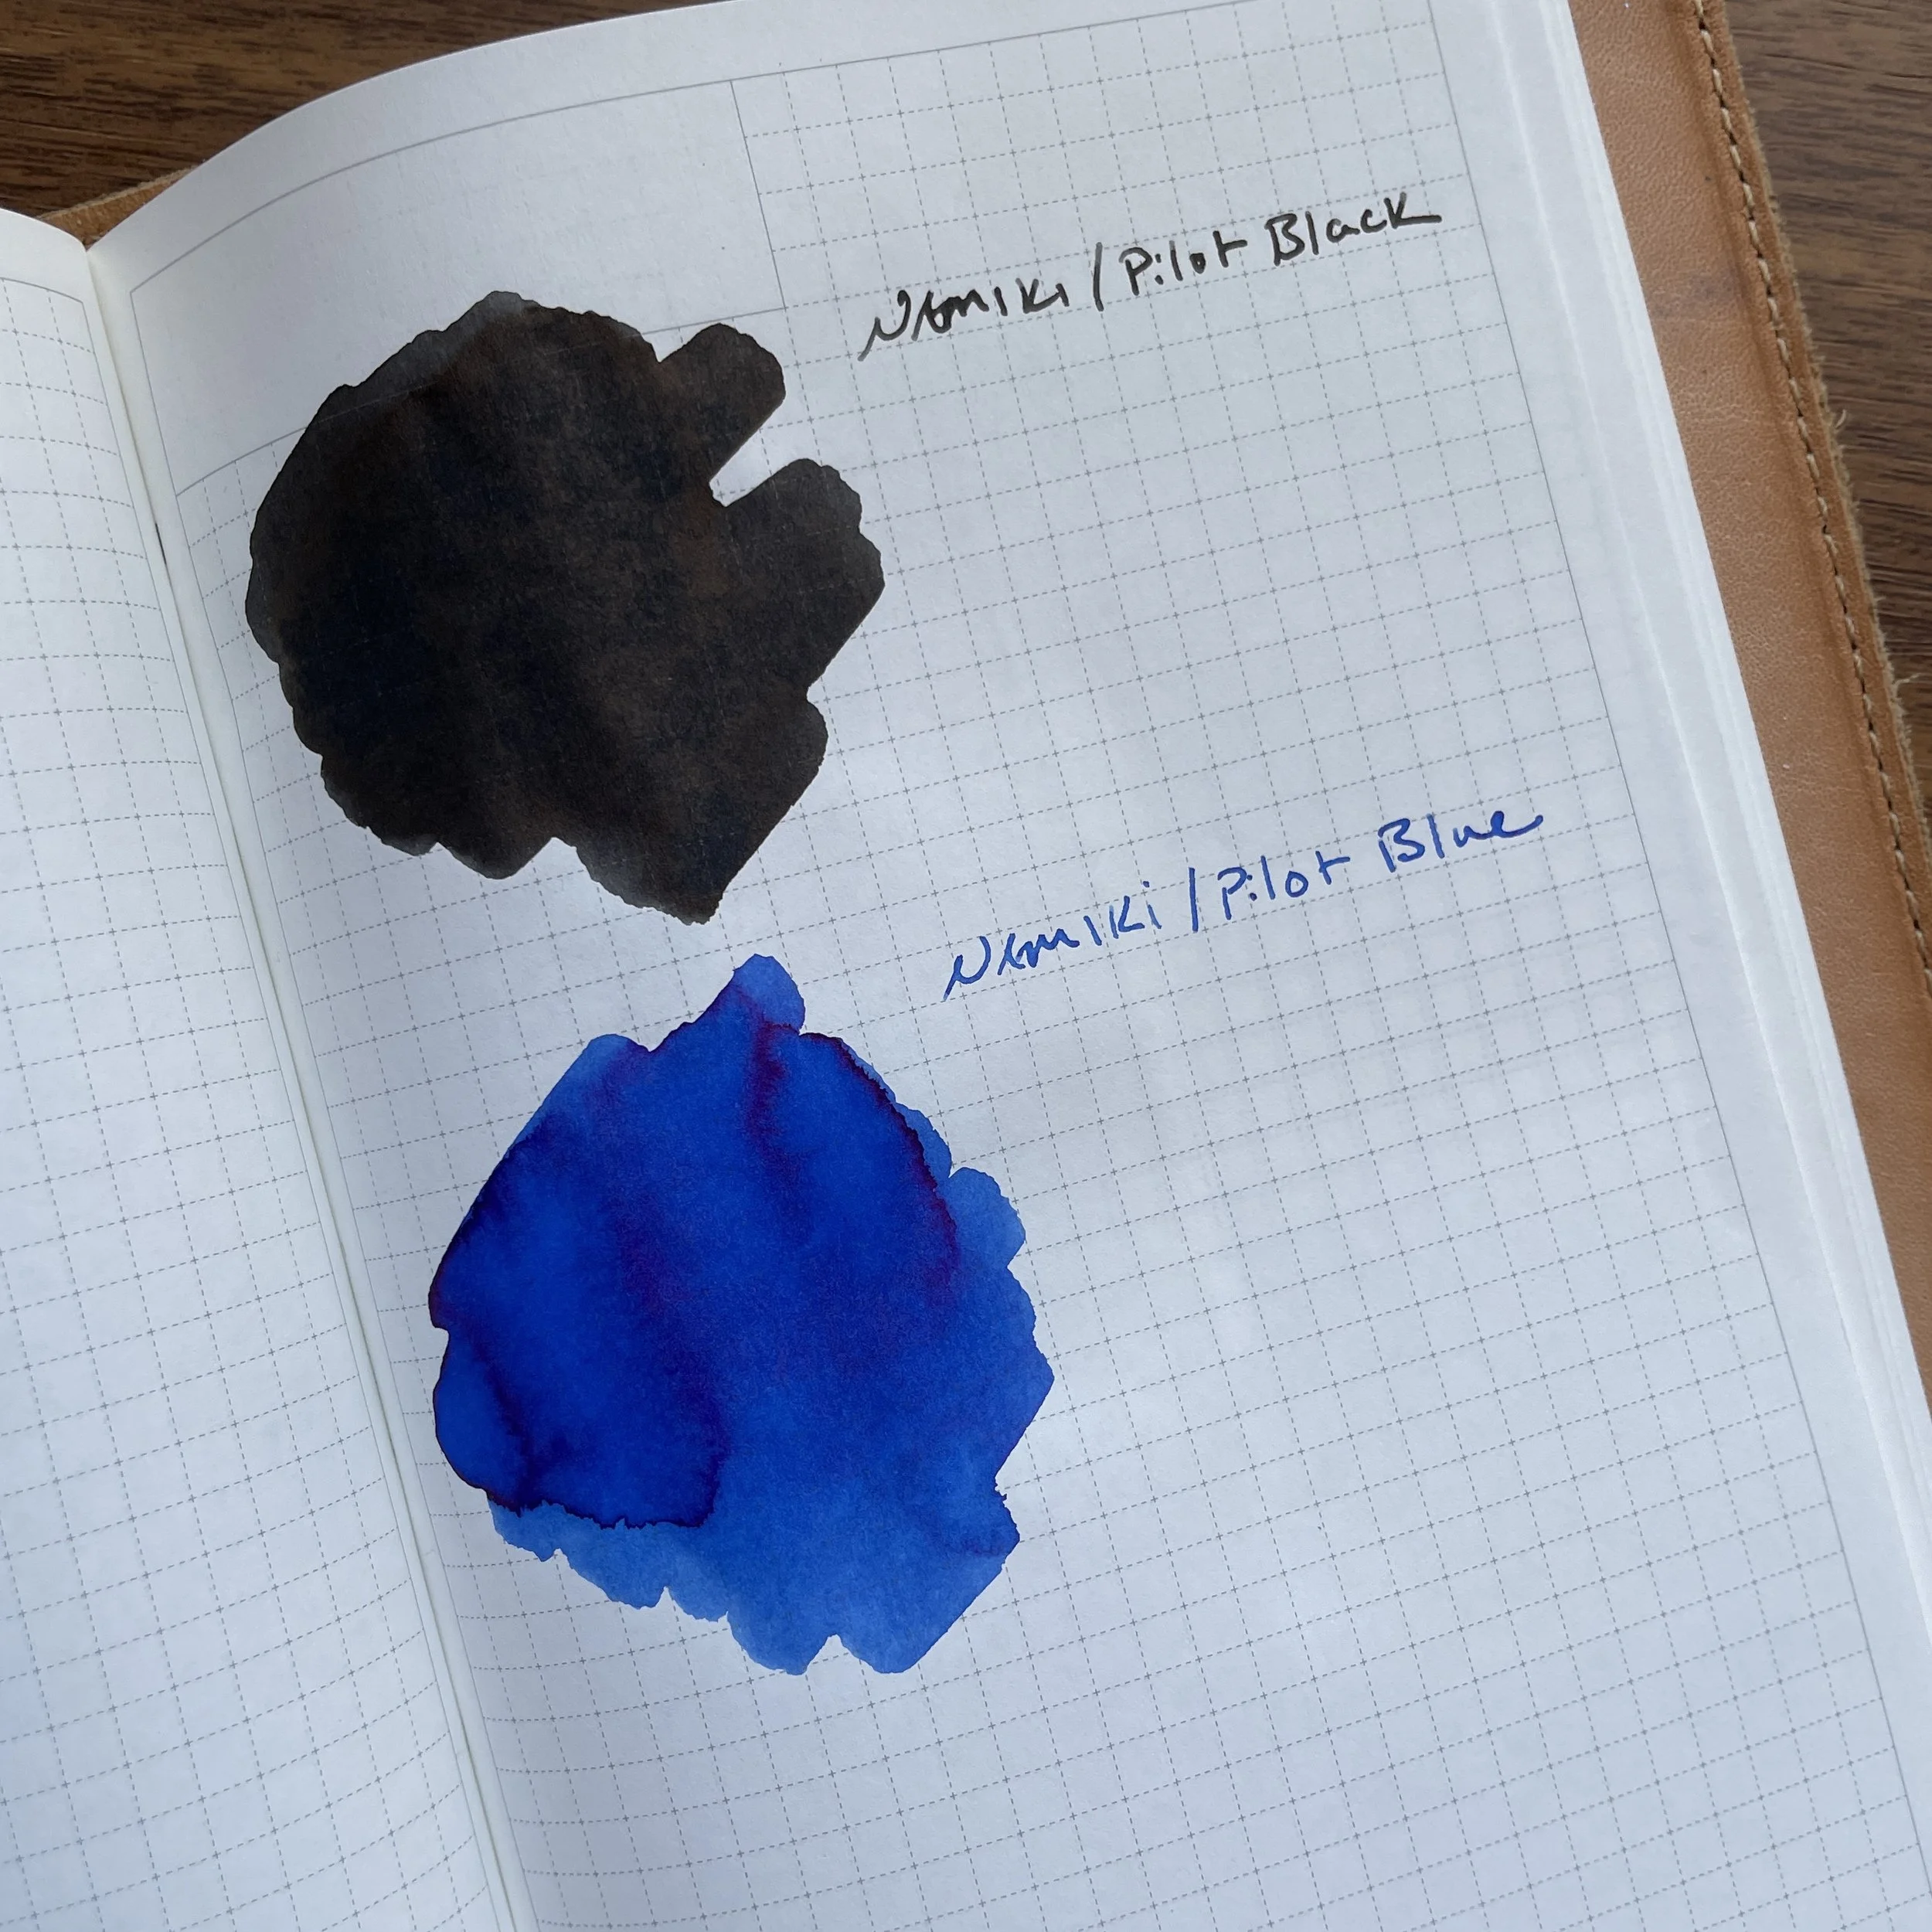 Namiki / Pilot Black
Namiki / Pilot Blue